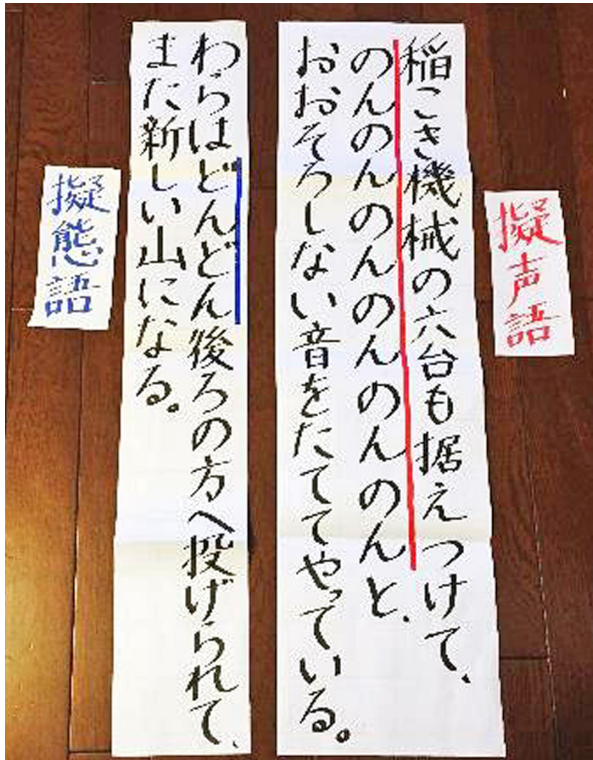 擬声語
稲こき機械の六台も据えつけて、
のんのんのんのんのんのんと、
おおそろしない音をたててやっている。
わらはどんどん後ろの方へ投げられて、
また新しい山になる。
擬態語